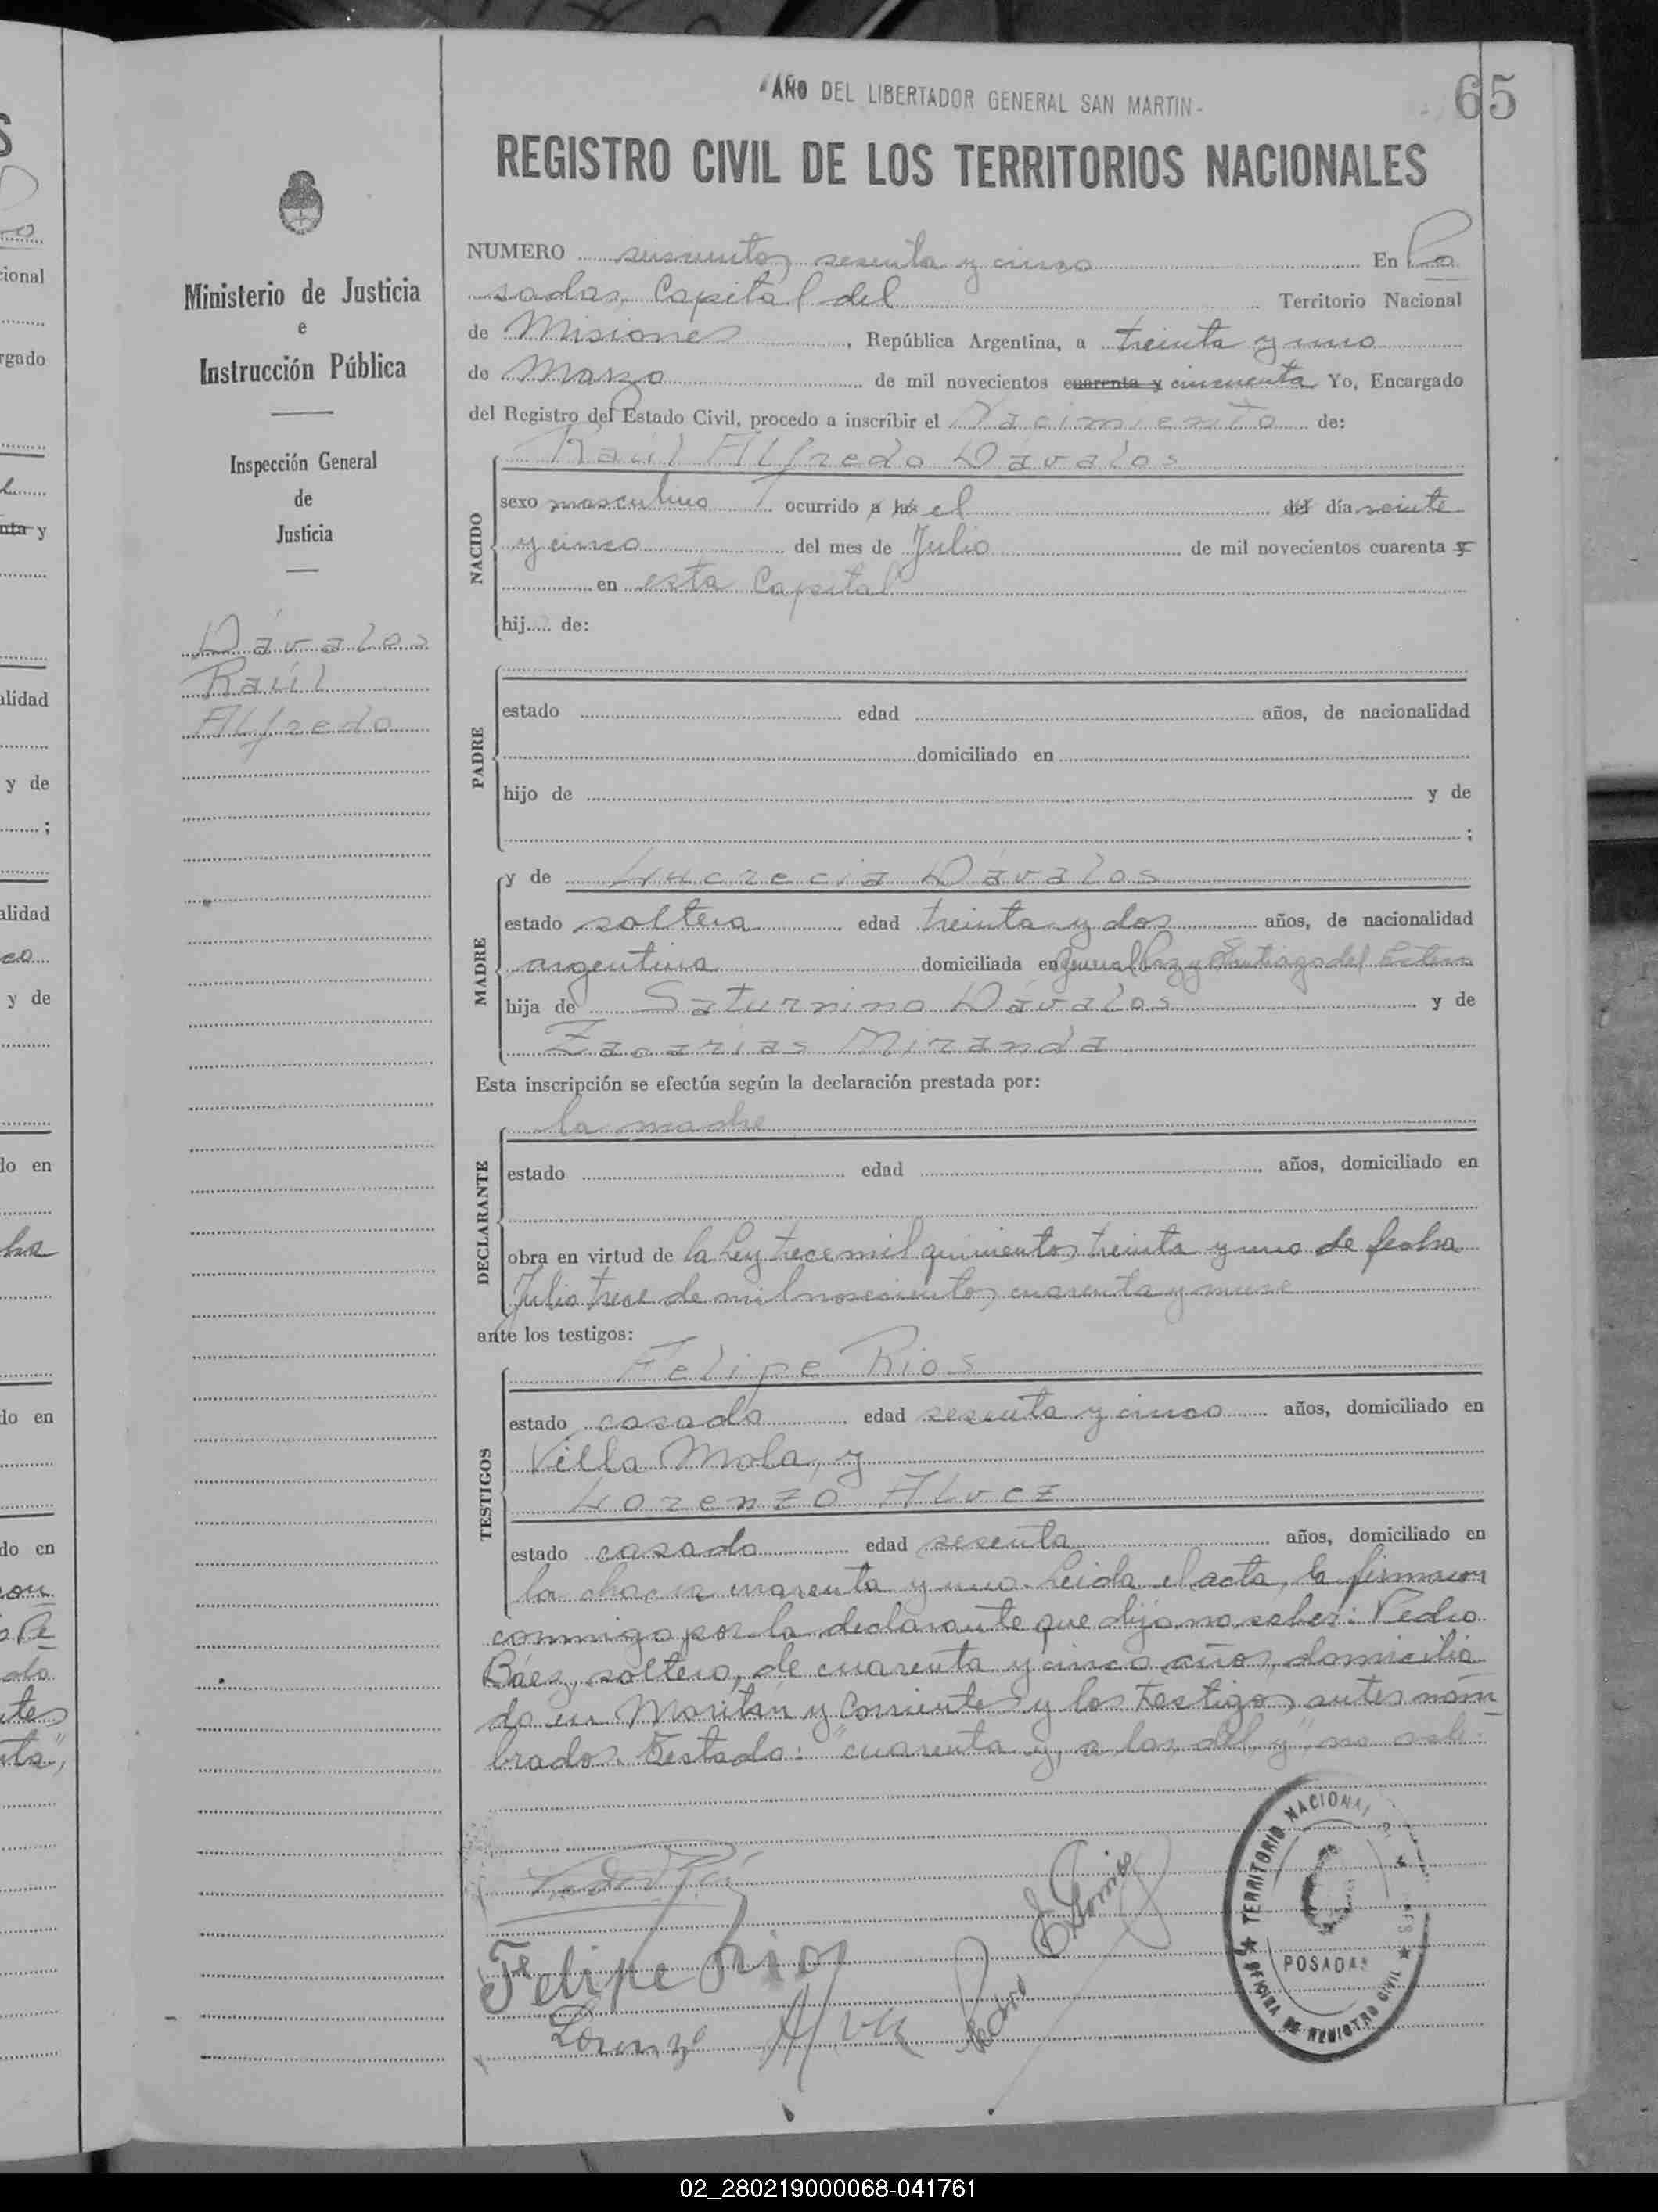 "AÑO DEL LIBERTADOR GENERAL SAN MARTIN-
65
REGISTRO CIVIL DE LOS TERRITORIOS NACIONALES
Ministerio de Justicia
e
Instrucción Pública
Inspección General
de
Justicia
Dávalos
Raúl
Alfredo
NUMERO seiscientos sesenta y cinco En Po
sadas, Capital del Territorio Nacional
de Misiones, República Argentina, a treinta y uno
de Marzo de mil novecientos cuarenta y cincuenta Yo, Encargado
del Registro del Estado Civil, procedo a inscribir el Nacimiento de:
Raúl Alfredo Dávalos
NACIDO
sexo masculino ocurrido a las el del día veinte
y cinco del mes de Julio de mil novecientos cuarenta y
en esta Capital
hij..... de:
PADRE
estado edad años, de nacionalidad
domiciliado en
hijo de y de
;
MADRE
y de Lucrecia Dávalos
estado soltera edad treinta y dos años, de nacionalidad
argentina domiciliada en General Paz y Santiago del Estero
hija de Saturnino Dávalos y de
Zacarias Miranda
Esta inscripción se efectúa según la declaración prestada por:
DECLARANTE
la madre
estado edad años, domiciliado en
obra en virtud de la Ley trece mil quinientos treinta y uno de fecha
Julio trece de mil novecientos cuarenta y nueve
ante los testigos:
TESTIGOS
Felipe Rios
estado casado edad sesenta y cinco años, domiciliado en
Villa Mola, y
Lorenzo Alvez
estado casado edad sesenta años, domiciliado en
la chacra cuarenta y uno. Leida el acta, la firmaron
conmigo por la declarante que dijo no saber: Pedro
Báez, soltero, de cuarenta y cinco años, domicilia
do en Maritán y Corrientes y los testigos antes nom
brados. Testado: "cuarenta y, a las, del, y", no vale.
Felipe Rios
Lorenzo Alvez
Pedro E Gomez
★ TERRITORIO NACIONAL
POSADAS
OFICINA DE REGISTRO CIVIL ★
ional
rgado
nta y
alidad
y de
;
alidad
y de
do en
do en
do en
02_280219000068-041761